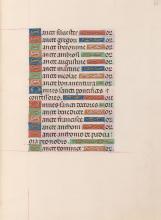 ancte siluester or
ancte gregori or
ancte iheronime or
ancte ambrosi or
ancte augustine or
ancte martine or
ancte nicolae or
ancte bonauentura or
mnes sancti pontifices et
confessores or
mnes sancti doctores or
ancte benedicte or
ancte francisce or
ancte anthoni or
ancte anthoni de padua
ora pro nobis or
ancte dominice or